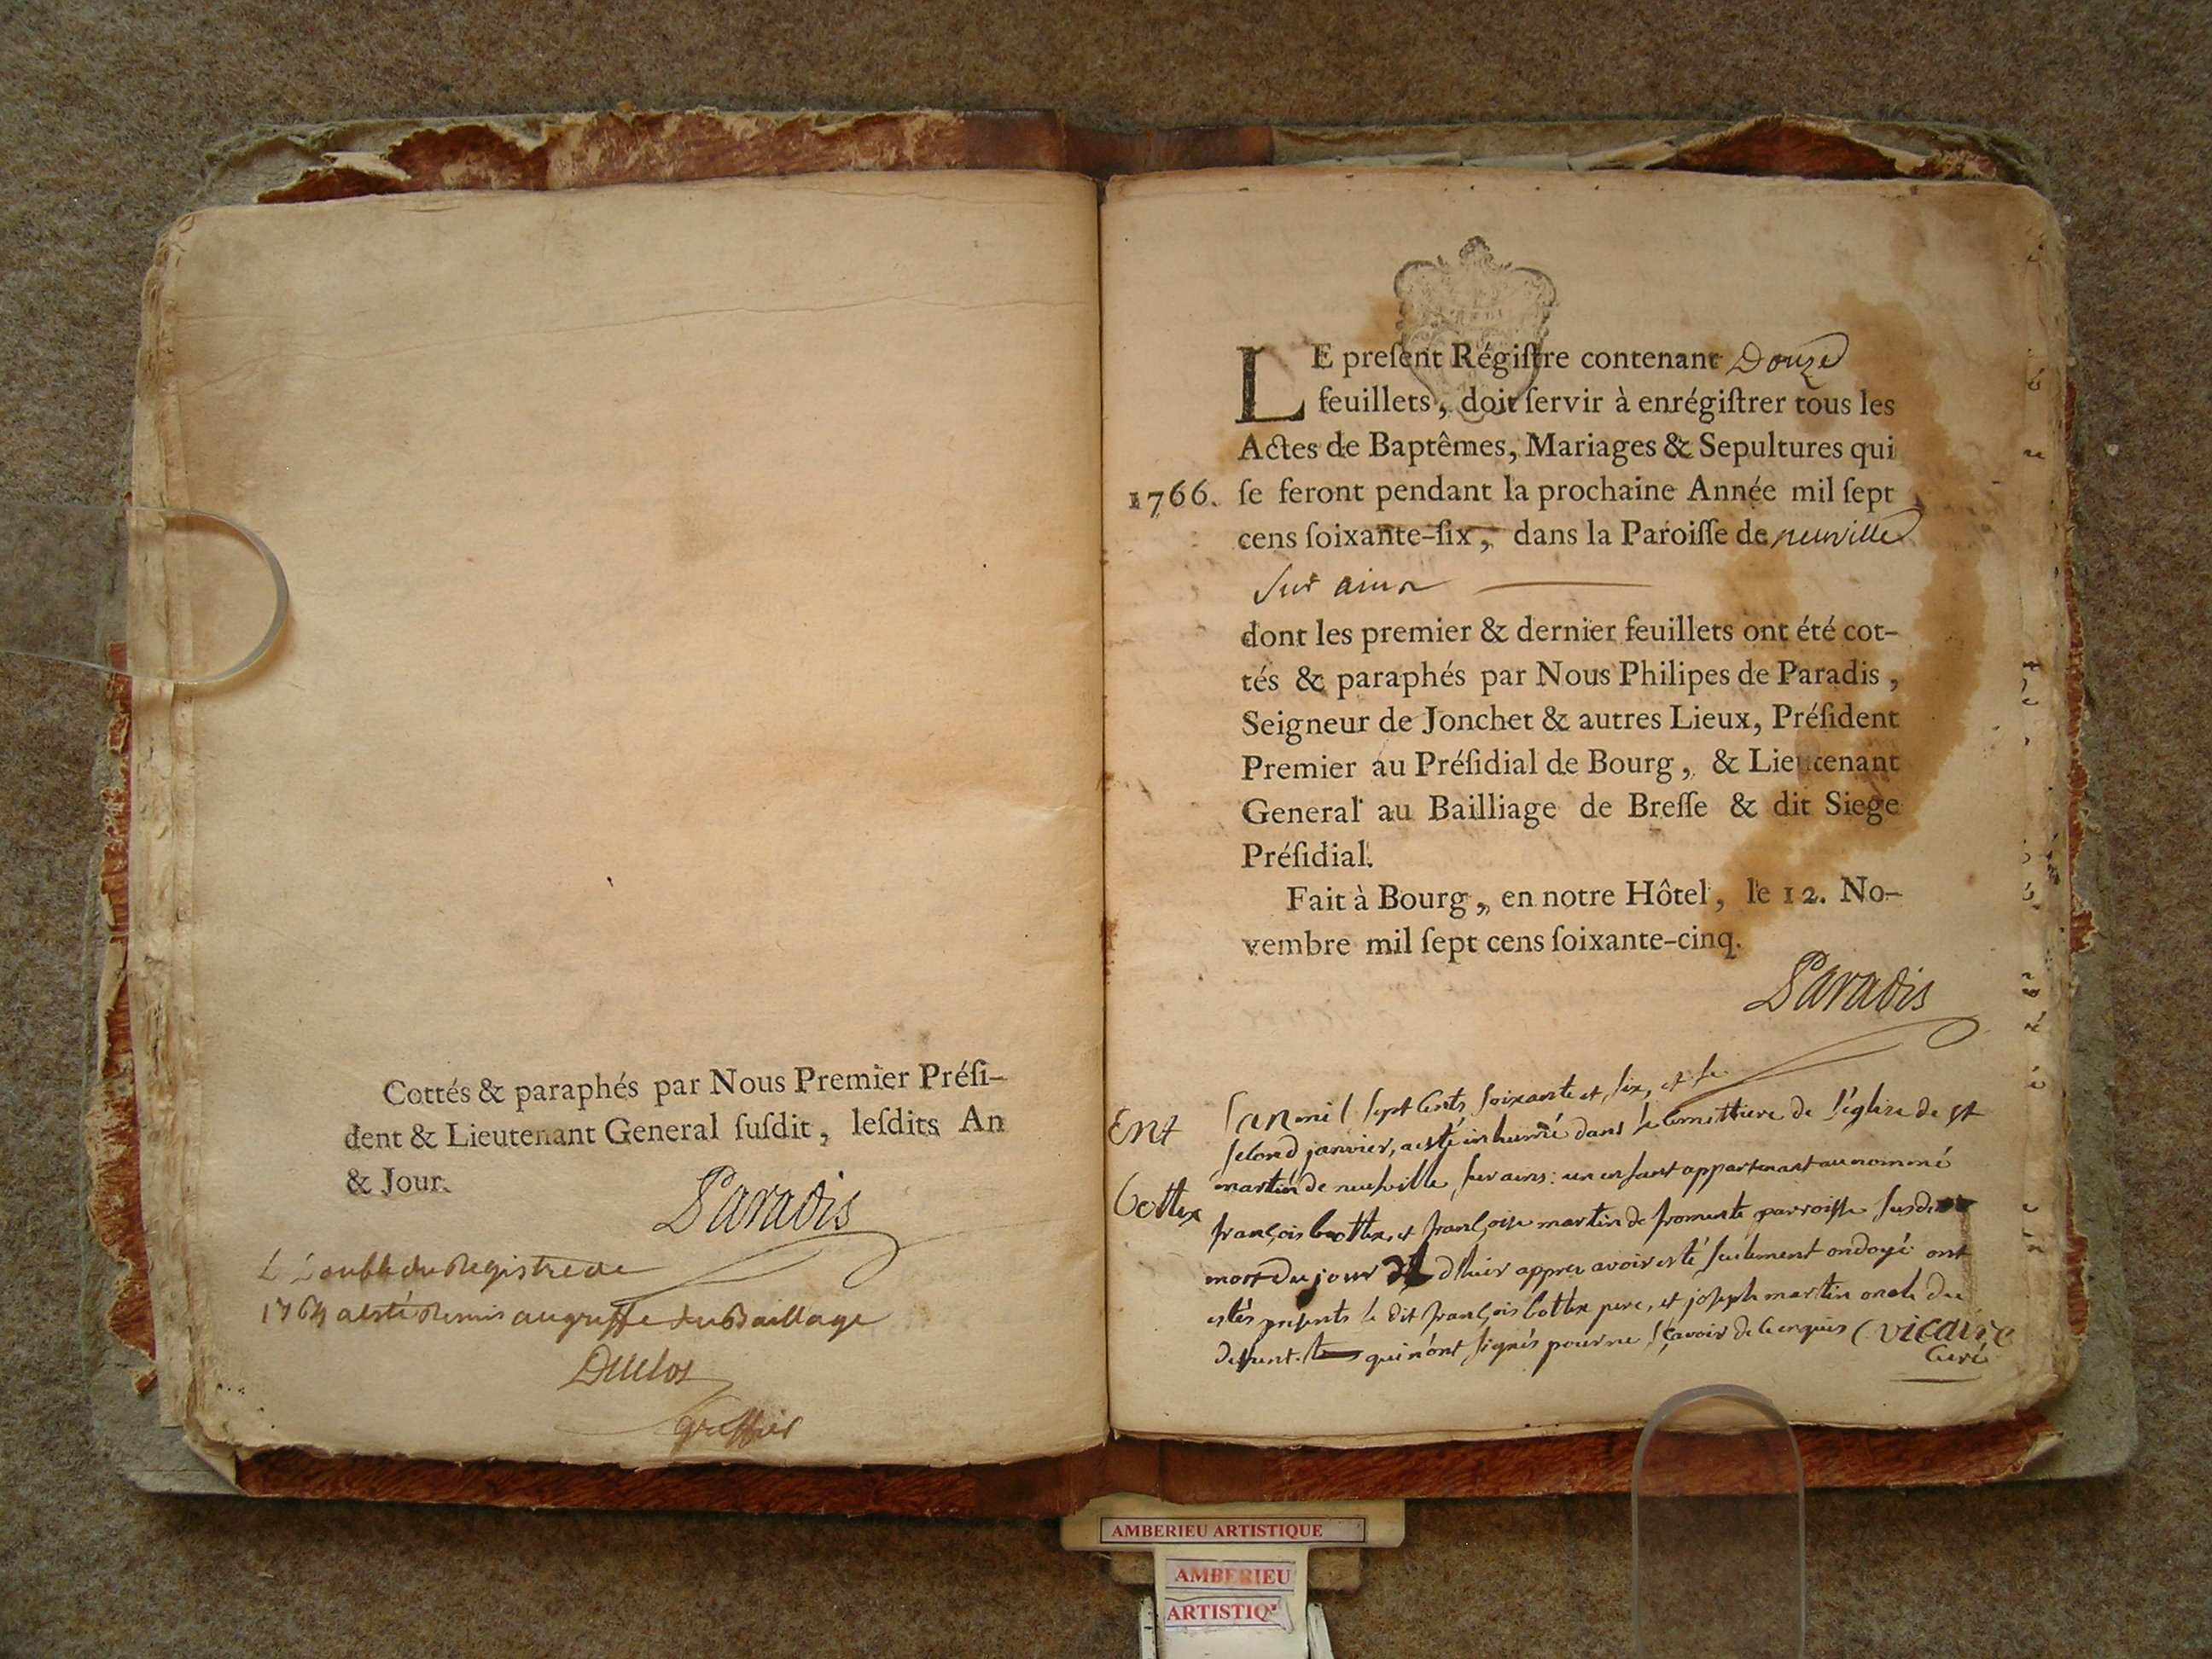 Cottés & paraphés par Nous Premier Préſi-
dent & Lieutenant General ſuſdit, leſdits An
& Jour.
Paradis
Double du Registre de
1764 a esté Remis au greffe du Baillage
Duclos
greffier
LE preſent Régiſtre contenant Douze
feuillets, doit ſervir à enrégiſtrer tous les
Actes de Baptêmes, Mariages & Sepultures qui
1766. ſe feront pendant la prochaine Année mil ſept
cens ſoixante-ſix, dans la Paroiſſe de neuville
Sur ain
dont les premier & dernier feuillets ont été cot-
tés & paraphés par Nous Philipes de Paradis,
Seigneur de Jonchet & autres Lieux, Préſident
Premier au Préſidial de Bourg, & Lieutenant
General au Bailliage de Breſſe & dit Siege
Préſidial.
Fait à Bourg, en notre Hôtel, le 12. No-
vembre mil ſept cens ſoixante-cinq.
Paradis
Ent
Cottex
l'an mil sept cents soixante et six, et le
second janvier, a esté inhumé dans le cimettiere de l'église de st
martin de neufville sur ains: un enfant appartenant au nommé
françois cottex et françoise martin de fromente parroisse susd
mort du jour d'hier appres avoir esté seulement ondoyé ont
estés presents le dit françois cottex pere, et joseph martin oncle du
deffunt qui n'ont signés pour ne sçavoir de ce enquis vicaire
Curé
AMBERIEU ARTISTIQUE
AMBERIEU
ARTISTIQ